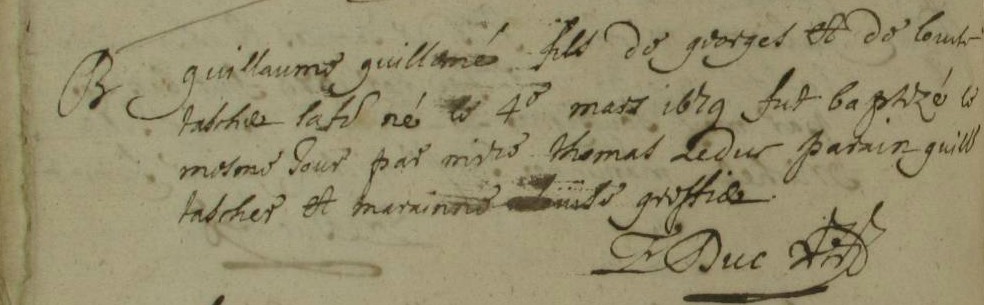 B guillaume guillemé fils de georges et de louise
tascher sa fẽ né le 4e mars 1679 fut baptizé le
mesme Jour par mire thomas Leduc parain guill
tascher et marainne Louise greffier
Le Duc